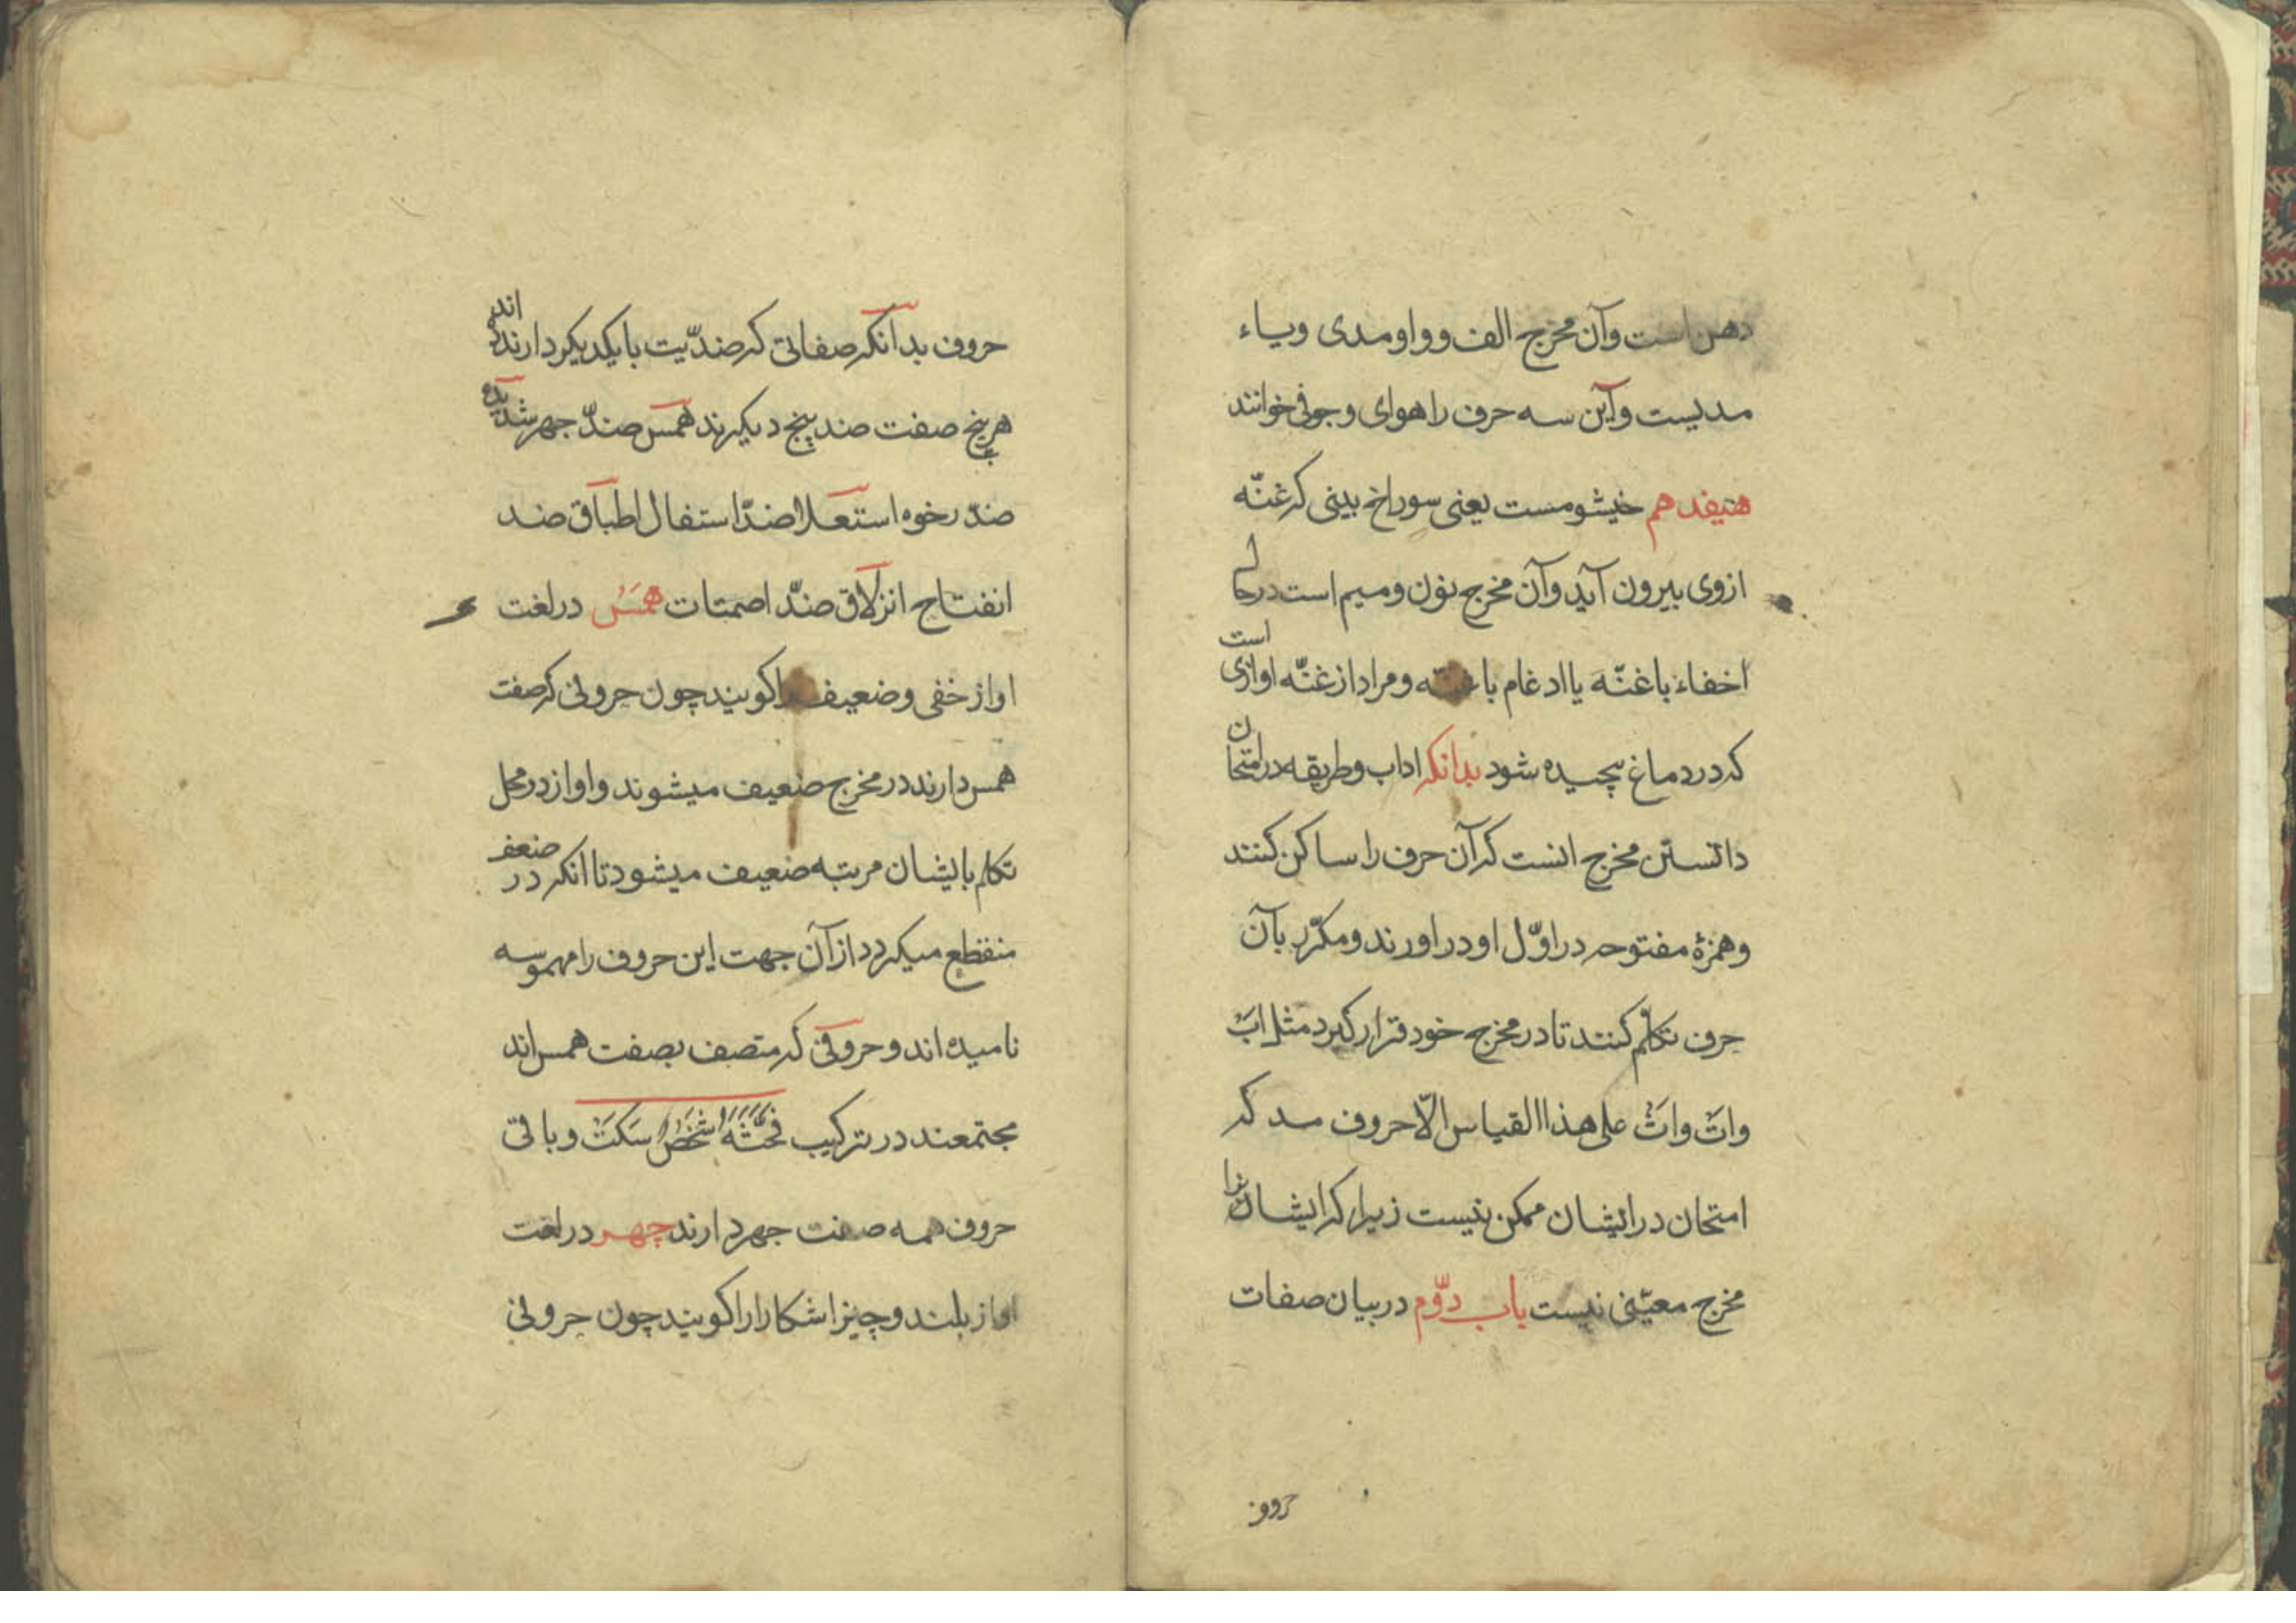 دهن است وآن مخرج الف وواو مدی ویاء
مدیست وآین سه حرف را هوای وجوفی خوانند
هیفدهم خیشومست یعنی سوراخ بینی که غنّه
ازوی بیرون آید وآن مخرج نون ومیم است در حالی
اخفاء باغنّه یا ادغام باغنّه ومراد از غنّه اوازی است
که در دماغ پیچیده شود بدانکه اداب وطریقه در امتحان
دانستن مخرج انست که آن حرف را ساکن کنند
وهمزهٔ مفتوحه در اوّل او در اورند ومکرّر بآن
حرف تکلّم کنند تا در مخرج خود قرار کیرد مثل ابَْ
واتَْ واثَْ علی هذا القیاس الّا حروف مد که
امتحان در ایشان ممکن نیست زیرا که ایشانرا
مخرج معیّنی نیست باب دوّم در بیان صفات
حروف
حروف بدانکه صفاتی که ضدّیت با یکدیکر دارند ده اند
هر پنج صفت ضد پنج دیکرند همس ضدّ جهر شدیده
ضدّ رخوه استعلا ضدّ استفال اطباق ضد
انفتاح انزلاق ضدّ اصمتات همس در لغت
اواز خفی وضعیف را کویند چون حروفی که صفت
همس دارند در مخرج ضعیف میشوند واواز در محل
تکلم بایشان مرتبه ضعیف میشود تا انکه در ضعف
منقطع میکردد از آن جهت این حروف را مهموسه
نامیده اند وحروفی که متصف بصفت همس اند
مجتمعند در ترکیب فحثّه شخص سکت وباقی
حروف همه صفت جهر دارند جهر در لغت
اواز بلند وچیز اشکارا را کویند چون حروفی